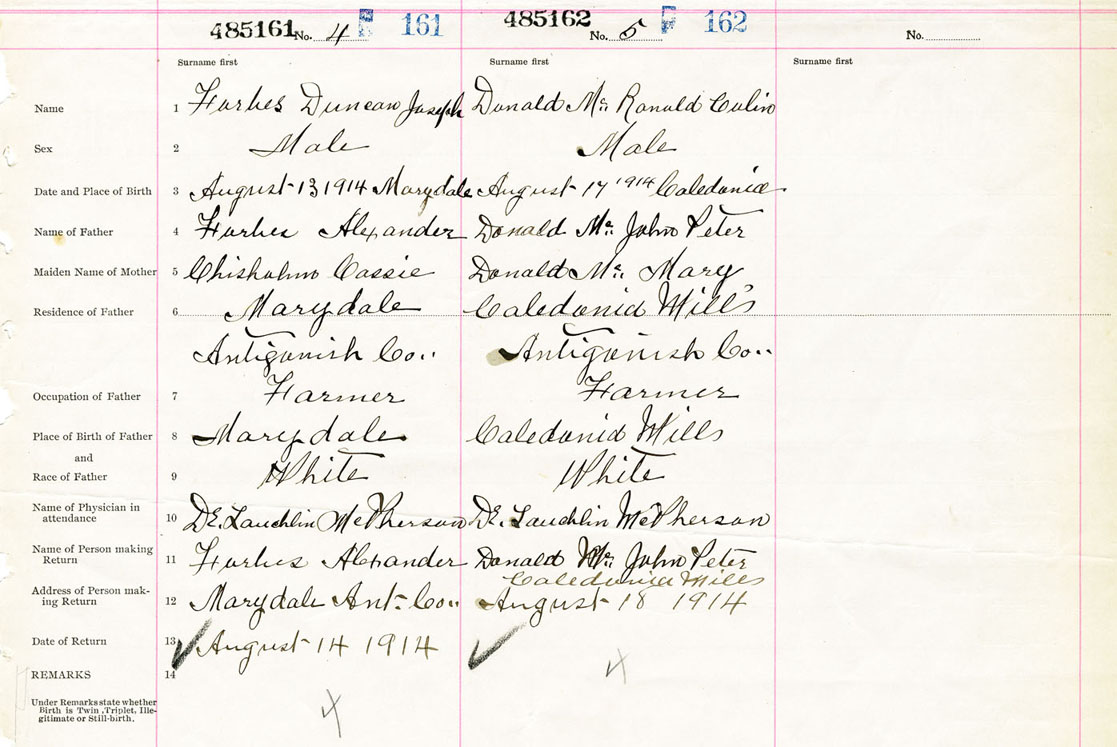 485161 No. 4 F 161 485162 No. 5 F 162 No.
Surname first Surname first Surname first
Name 1 Forbes Duncan Joseph Donald Mc Ronald Colin
Sex 2 Male Male
Date and Place of Birth 3 August 13 1914 Marydale August 17 1914 Caledonia
Name of Father 4 Forbes Alexander Donald Mc John Peter
Maiden Name of Mother 5 Chisholm Cassie Donald Mc Mary
Residence of Father 6 Marydale Caledonia Mills
Antigonish Co.. Antigonish Co..
Occupation of Father 7 Farmer Farmer
Place of Birth of Father 8 Marydale Caledonia Mills
and
Race of Father 9 White White
Name of Physician in
attendance 10 Dr. Lauchlin McPherson Dr. Lauchlin McPherson
Name of Person making
Return 11 Forbes Alexander Donald Mc John Peter
Caledonia Mills
Address of Person mak-
ing Return 12 Marydale Ant. Co.. August 18 1914
Date of Return 13 August 14 1914
REMARKS 14
Under Remarks state whether
Birth is Twin, Triplet, Ille-
gitimate or Still-birth.